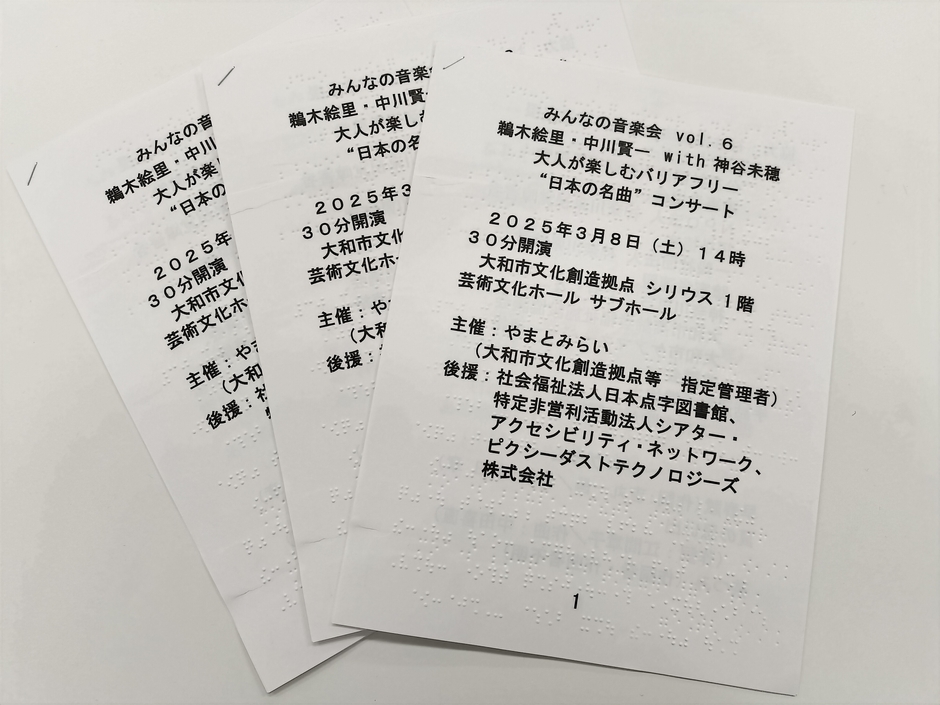 みんなの音
鵜木絵里・中川
大人が楽し
“日本の
２０２５年
３０分開演
大和市文化
芸術文化ホ
主催：やま
（大和
後援：社
みんなの音楽
鵜木絵里・中川賢一
大人が楽しむ
“日本の名
２０２５年３
３０分開演
大和市文化
芸術文化ホー
主催：やま
（大和
後援：
みんなの音楽会 vol.６
鵜木絵里・中川賢一 with 神谷未穂
大人が楽しむバリアフリー
“日本の名曲” コンサート
２０２５年３月８日（土）１４時
３０分開演
大和市文化創造拠点 シリウス １階
芸術文化ホール サブホール
主催：やまとみらい
（大和市文化創造拠点等　指定管理者）
後援：社会福祉法人日本点字図書館、
特定非営利活動法人シアター・
アクセシビリティ・ネットワーク、
ピクシーダストテクノロジーズ
株式会社
1